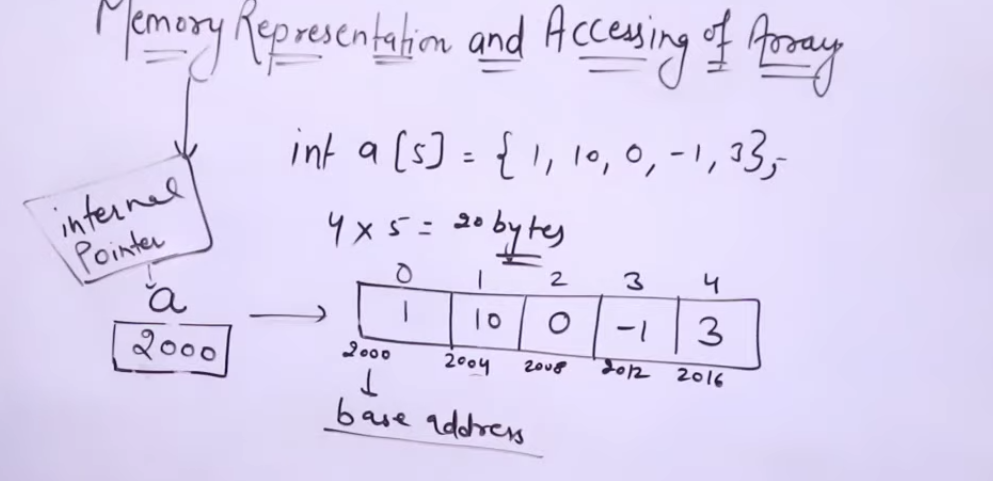 Memory Representation and Accessing of Array
int a[5] = {1, 10, 0, -1, 3};
internal
Pointer
4 x 5 = 20 bytes
0 1 2 3 4
a
2000
1 10 0 -1 3
2000 2004 2008 2012 2016
base address